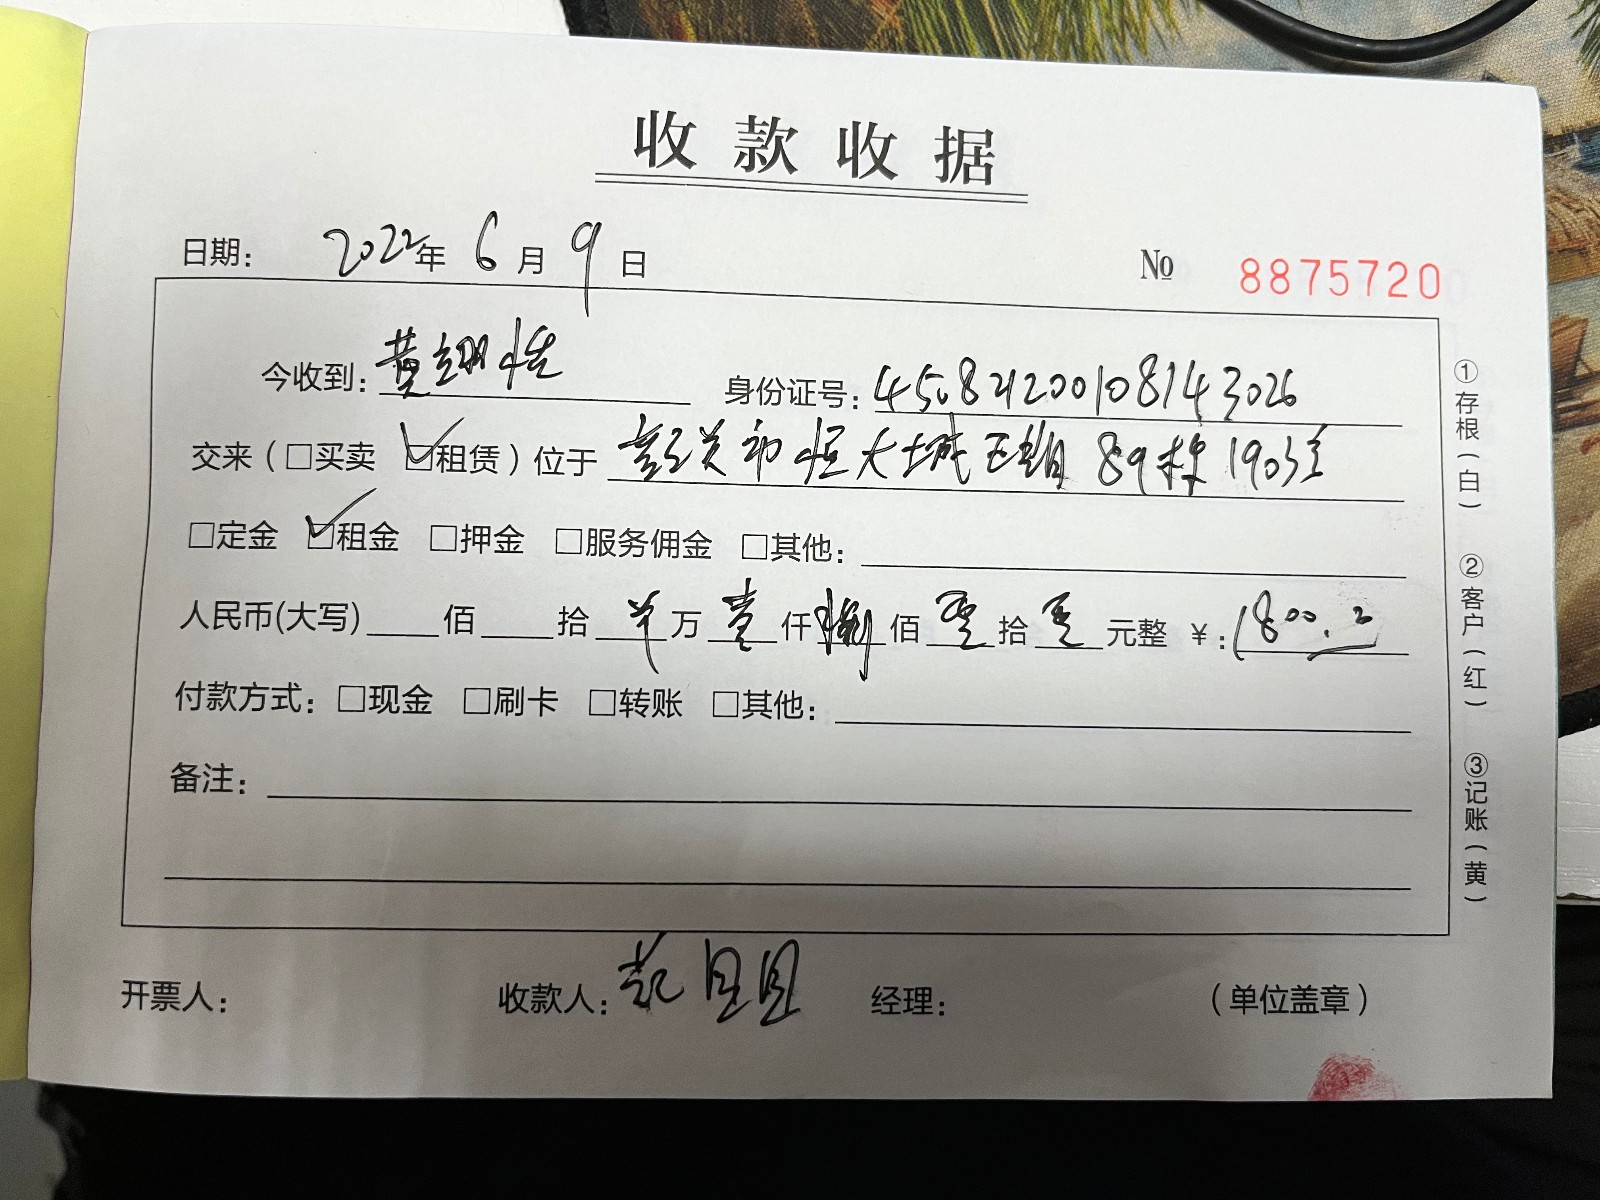 收款收据
日期： 2022年 6月 9日 № 8875720
今收到：黄翊恬 身份证号：450821200108143026
交来（□买卖 ☑租赁）位于 恒大城五期89栋1903室
□定金 ☑租金 □押金 □服务佣金 □其他：
人民币(大写) 佰 拾 万 壹仟 捌佰 零拾 零元整 ￥：1800.
付款方式：□现金 □刷卡 □转账 □其他：
备注：
开票人： 收款人： 经理： （单位盖章）
①存根（白） ②客户（红） ③记账（黄）